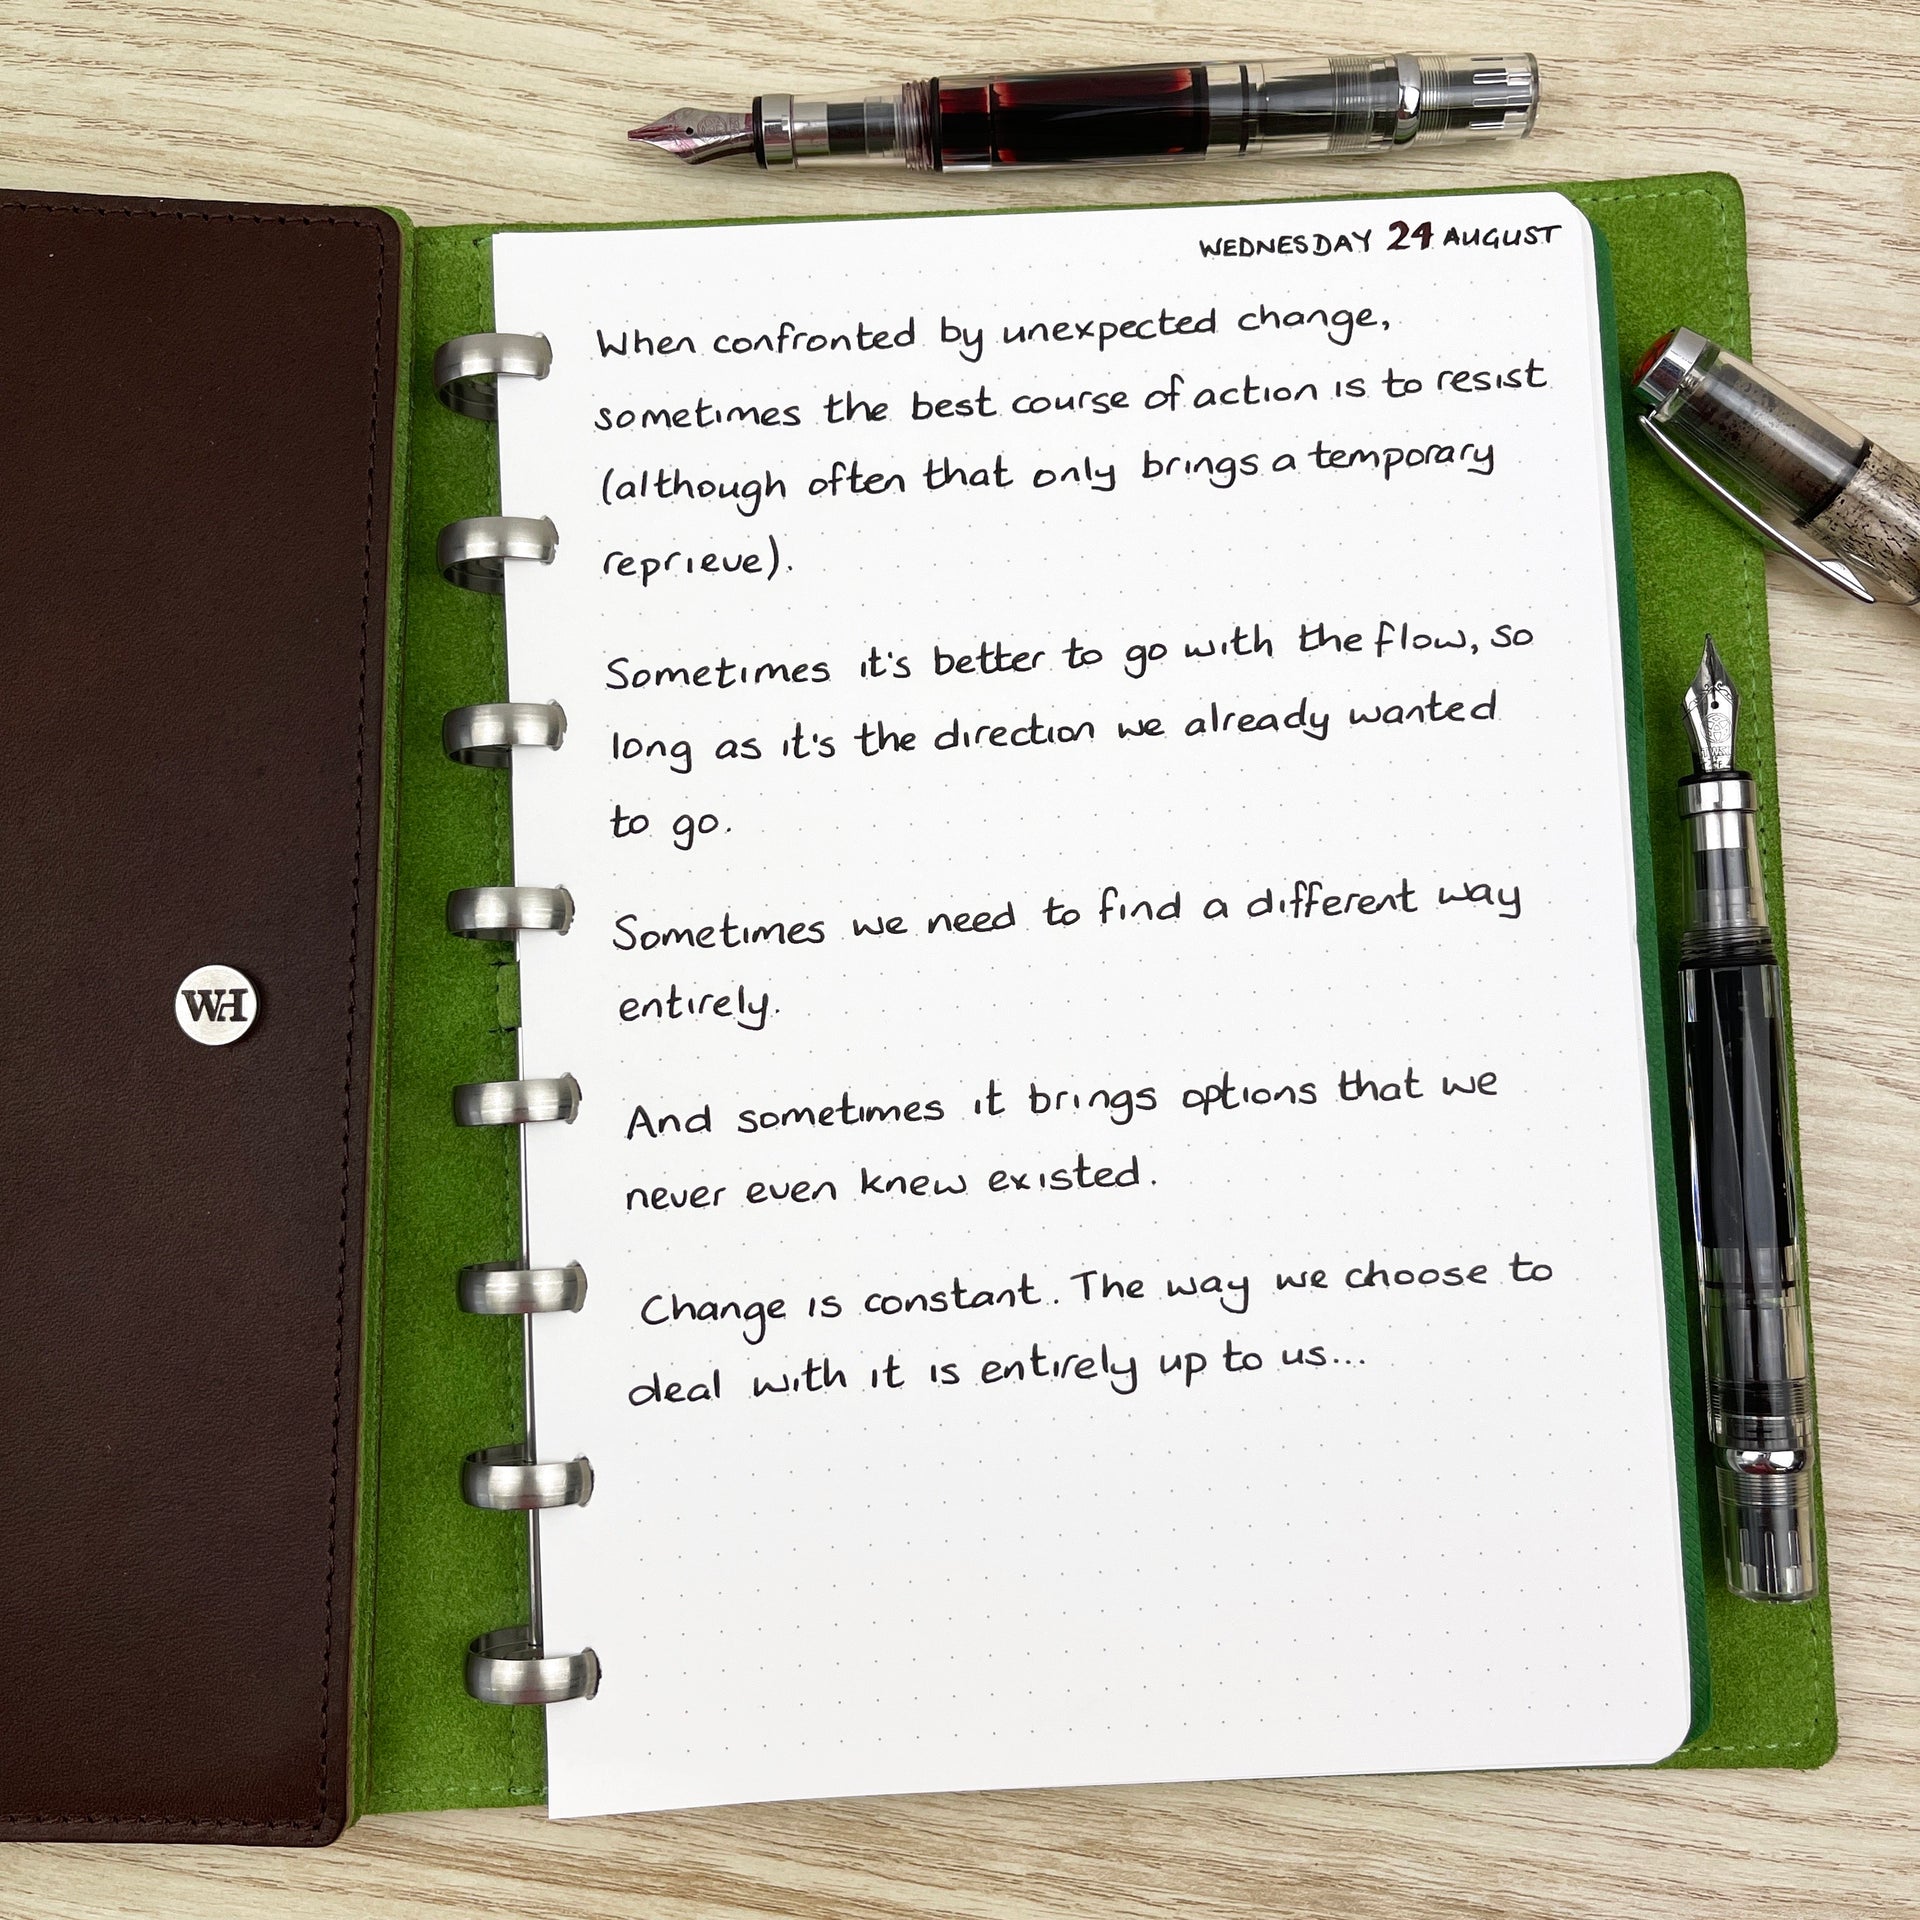 WEDNESDAY 24 AUGUST
When confronted by unexpected change,
sometimes the best course of action is to resist
(although often that only brings a temporary
reprieve).
Sometimes it's better to go with the flow, so
long as it's the direction we already wanted
to go.
Sometimes we need to find a different way
entirely.
And sometimes it brings options that we
never even knew existed.
Change is constant. The way we choose to
deal with it is entirely up to us...
WH